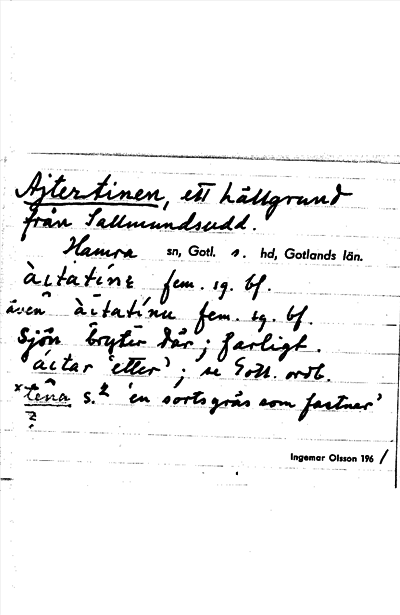 Ajtertinen, ett hällgrund
från Sallmundsudd.
Hamra sn, Gotl. s. hd, Gotlands län.
àitatínɛ fem. sg. bf.
även àitatínu fem. sg. bf.
Sjön bryter där; farligt.
áitar 'etter'; se Gotl. ordb.
*tena s.2 'en sorts gräs som fastnar'
?
Ingemar Olsson 1961